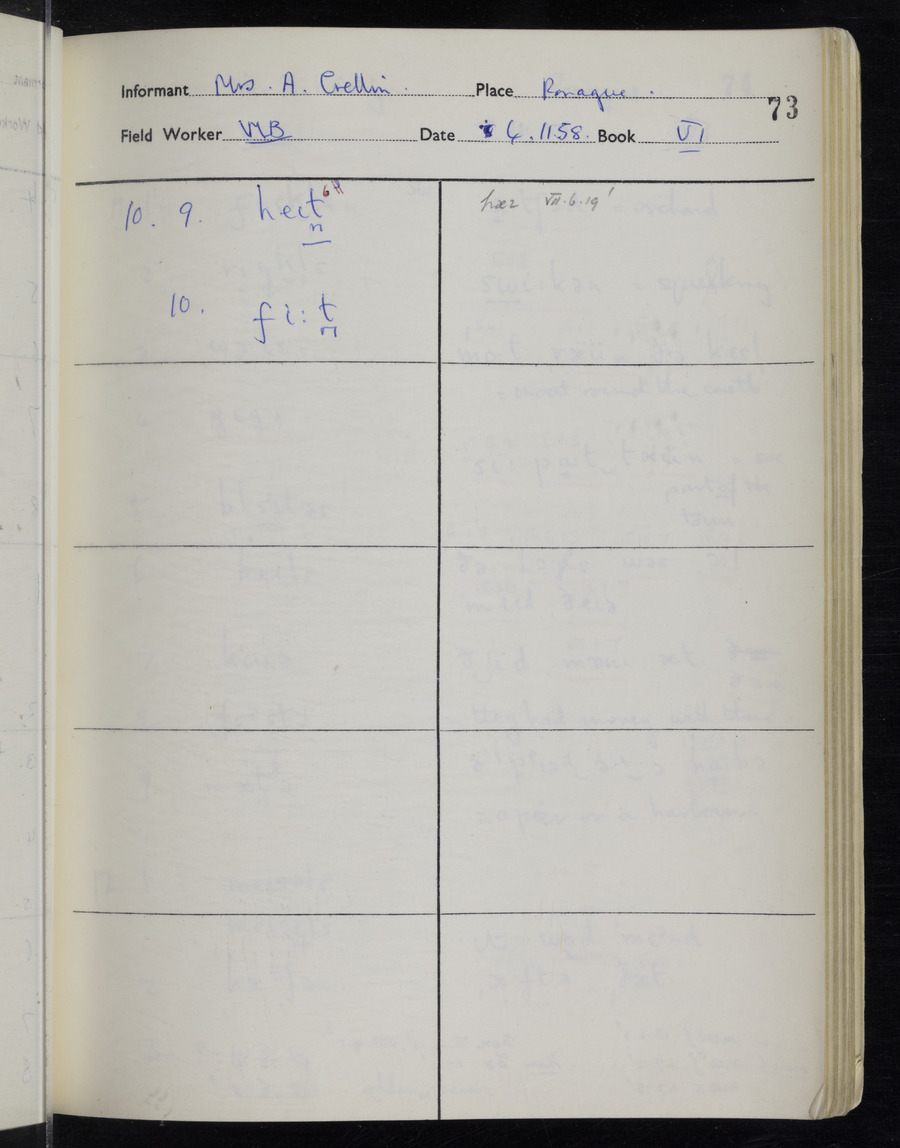 Informant Mrs. A. Crellin. Place Ronague.
73
Field Worker VMB Date 4.11.58. Book VI
10. 9. heit̪
hæz VII.6.19
10. fi:t̪